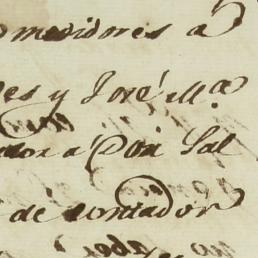 medidores a
es y José M.a
ador a Don Sal
de contador